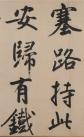 塞路持此
安歸有鐵